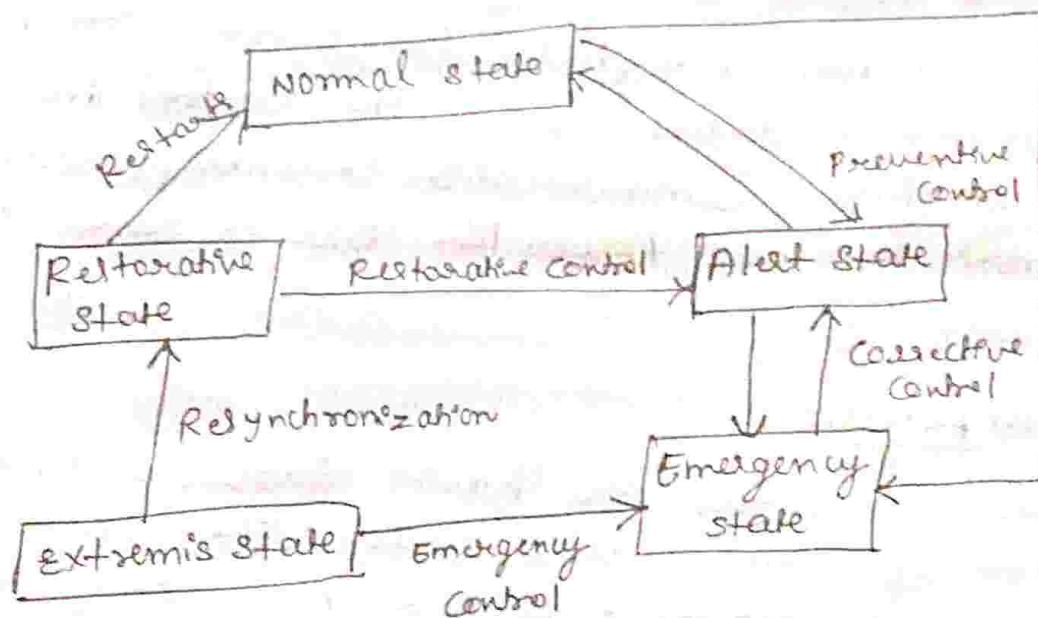 Normal state
Restore
Preventive
Control
Restorative
state
Restorative control
Alert state
Corrective
Control
Resynchronization
Emergency
state
Extremis state
Emergency
Control